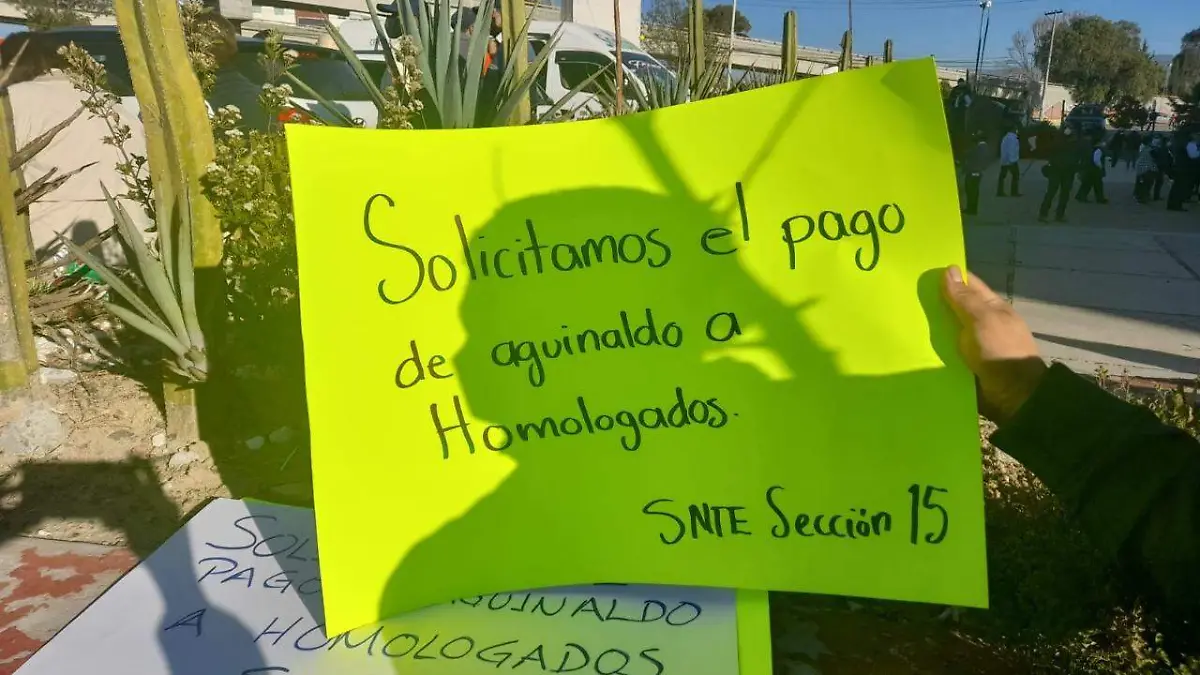 Solicitamos el pago
de aguinaldo a
Homologados.
SNTE Sección 15
PAGO
AGUINALDO
A HOMOLOGADOS